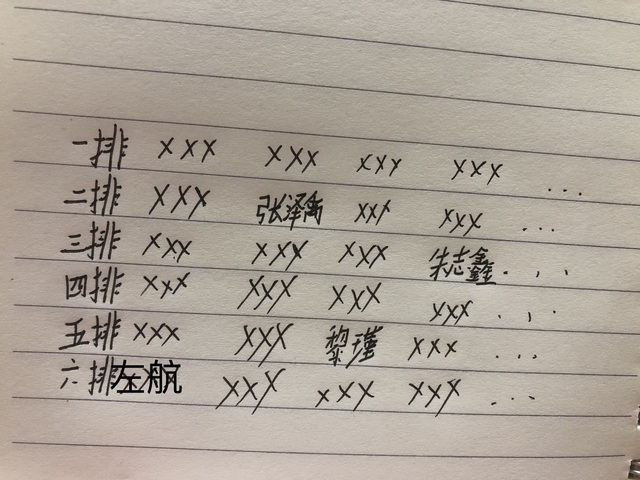 一排 xxx xxx xxx xxx ...
二排 xxx 张泽禹 xxx xxx ...
三排 xxx xxx xxx 朱志鑫 ...
四排 xxx xxx xxx xxx ...
五排 xxx xxx 黎瑾 xxx ...
六排 左航 xxx xxx xxx ...